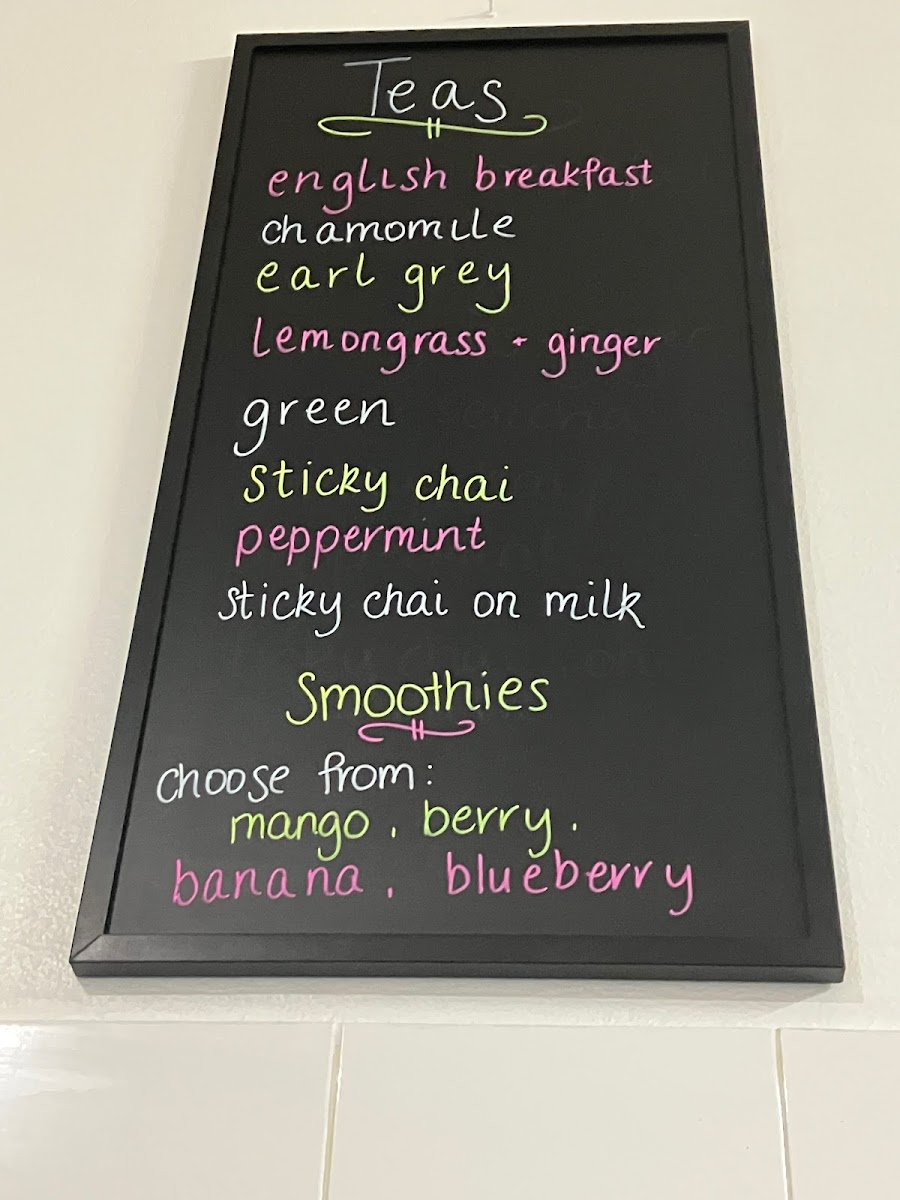 Teas
english breakfast
chamomile
earl grey
lemongrass + ginger
green
sticky chai
peppermint
sticky chai on milk
Smoothies
choose from:
mango, berry,
banana, blueberry